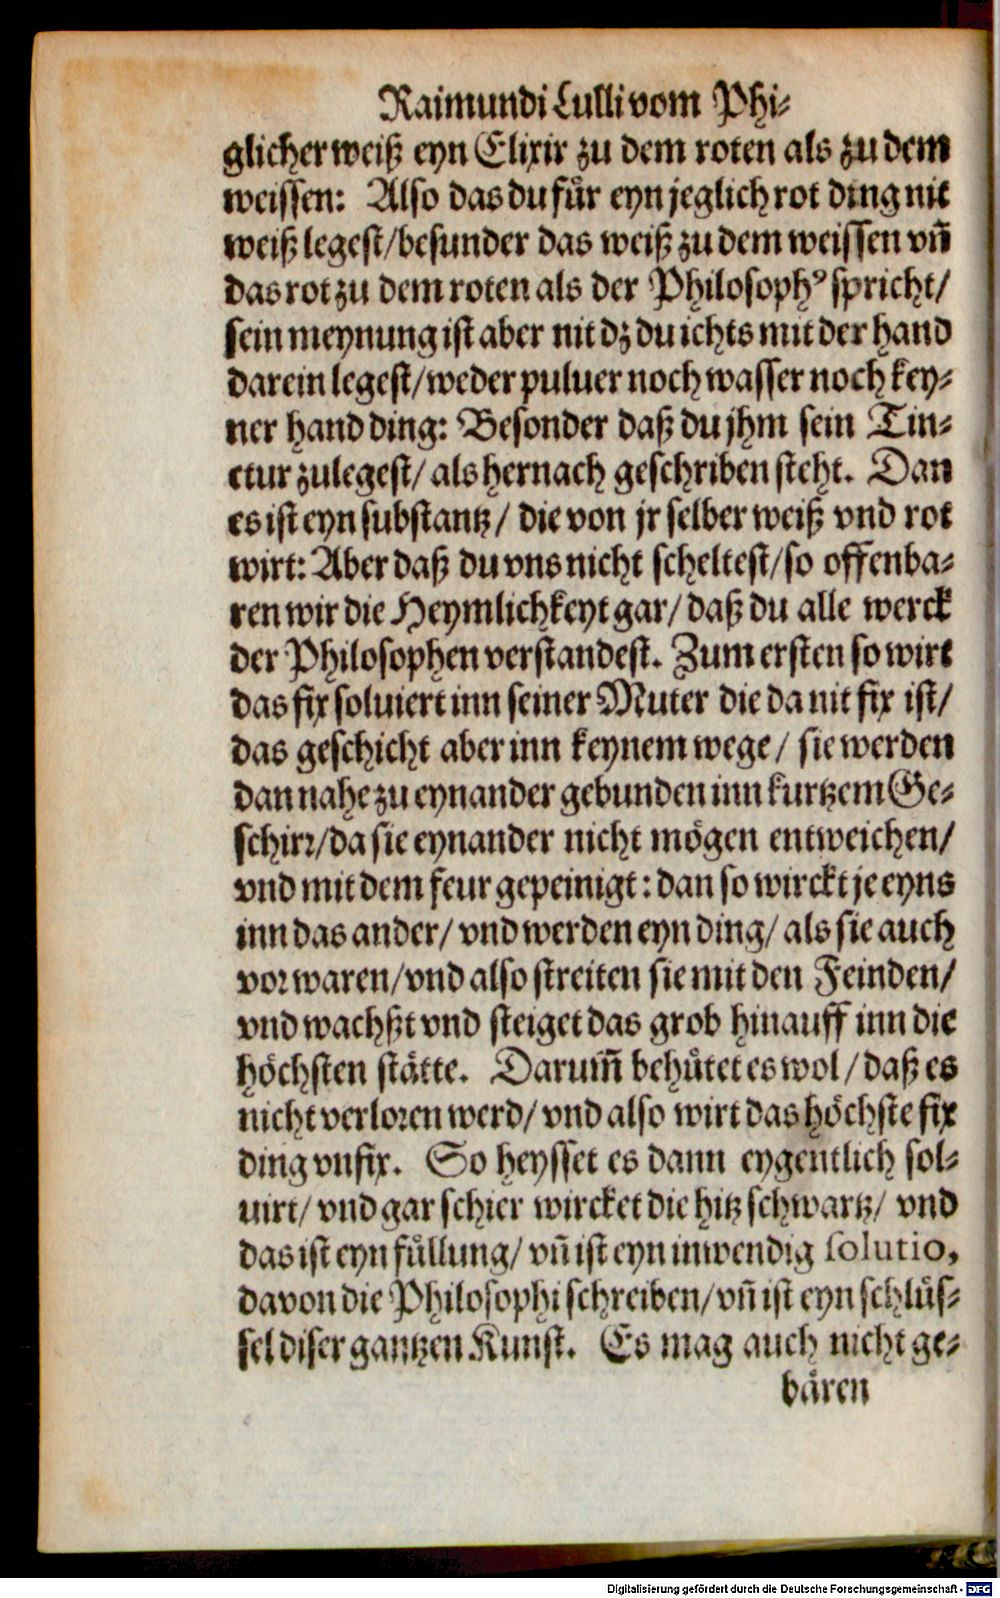 Raimundi Lulli vom Phi⸗
glicher weiß eyn Elixir zu dem roten als zu dem
weissen: Also das du fuͤr eyn jeglich rot ding nit
weiß legest/ besunder das weiß zu dem weissen vñ
das rot zu dem roten als der Philosophꝰ spricht/
sein meynung ist aber nit dz du ichts mit der hand
darein legest/ weder puluer noch wasser noch key⸗
ner hand ding: Besonder daß du jhm sein Tin⸗
ctur zulegest/ als hernach geschriben steht. Dan
es ist eyn substantz/ die von jr selber weiß vnd rot
wirt: Aber daß du vns nicht scheltest/ so offenba⸗
ren wir die Heymlichkeyt gar/ daß du alle werck
der Philosophen verstandest. Zum ersten so wirt
das fix soluiert inn seiner Muter die da nit fix ist/
das geschicht aber inn keynem wege/ sie werden
dan nahe zu eynander gebunden inn kurtzem Ge⸗
schirꝛ/ da sie eynander nicht moͤgen entweichen/
vnd mit dem feur gepeinigt: dan so wirckt je eyns
inn das ander/ vnd werden eyn ding/ als sie auch
voꝛ waren/ vnd also streiten sie mit den Feinden/
vnd wachßt vnd steiget das grob hinauff inn die
hoͤchsten staͤtte. Darum̃ behuͤtet es wol/ daß es
nicht verloꝛen werd/ vnd also wirt das hoͤchste fix
ding vnfix. So heysset es dann eygentlich sol⸗
uirt/ vnd gar schier wircket die hitz schwartz/ vnd
das ist eyn fuͤllung/ vñ ist eyn inwendig solutio,
davon die Philosophi schreiben/ vñ ist eyn schluͤs⸗
sel diser gantzen Kunst. Es mag auch nicht ge⸗
baͤren
Digitalisierung gefördert durch die Deutsche Forschungsgemeinschaft - DFG